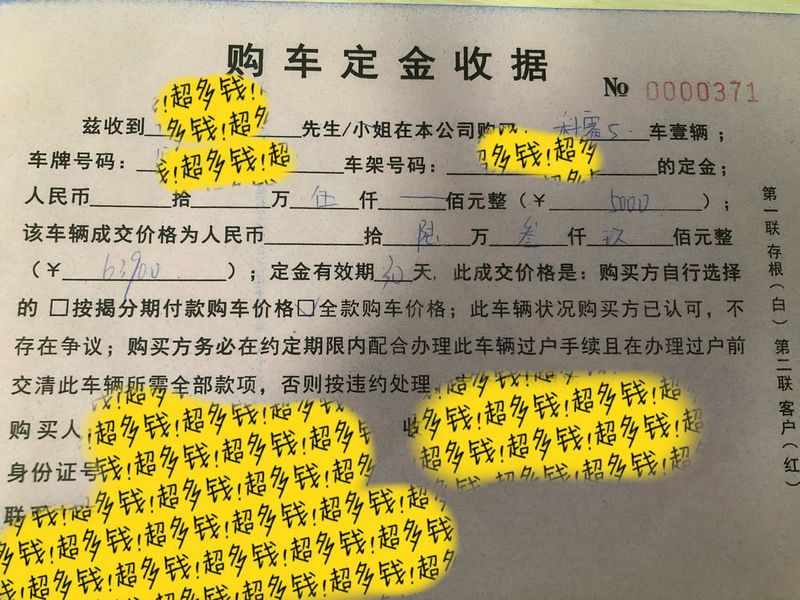 购车定金收据
№ 0000371
兹收到 超多钱! 先生/小姐在本公司购 科雷5 车壹辆；
多钱!超多
车牌号码： !超多钱!超多 车架号码： 超多钱!超多 的定金；
人民币 拾 万 伍 仟 一 佰元整（￥ 5000 ）；
该车辆成交价格为人民币 拾 陆 万 叁 仟 玖 佰元整
（￥ 63900 ）；定金有效期 30 天，此成交价格是：购买方自行选择
的 □按揭分期付款购车价格 □全款购车价格；此车辆状况购买方已认可，不
存在争议；购买方务必在约定期限内配合办理此车辆过户手续且在办理过户前
交清此车辆所需全部款项，否则按违约处理。
购买人 超多钱!超多钱!超多钱! 收 超多钱!超多钱!超多钱!
身份证号 钱!超多钱!超多钱!超多钱!
联
超多钱!超多钱!超多钱!超多钱!
多钱!超多钱!超多钱!超多钱!
第一联 存根（白） 第二联 客户（红）